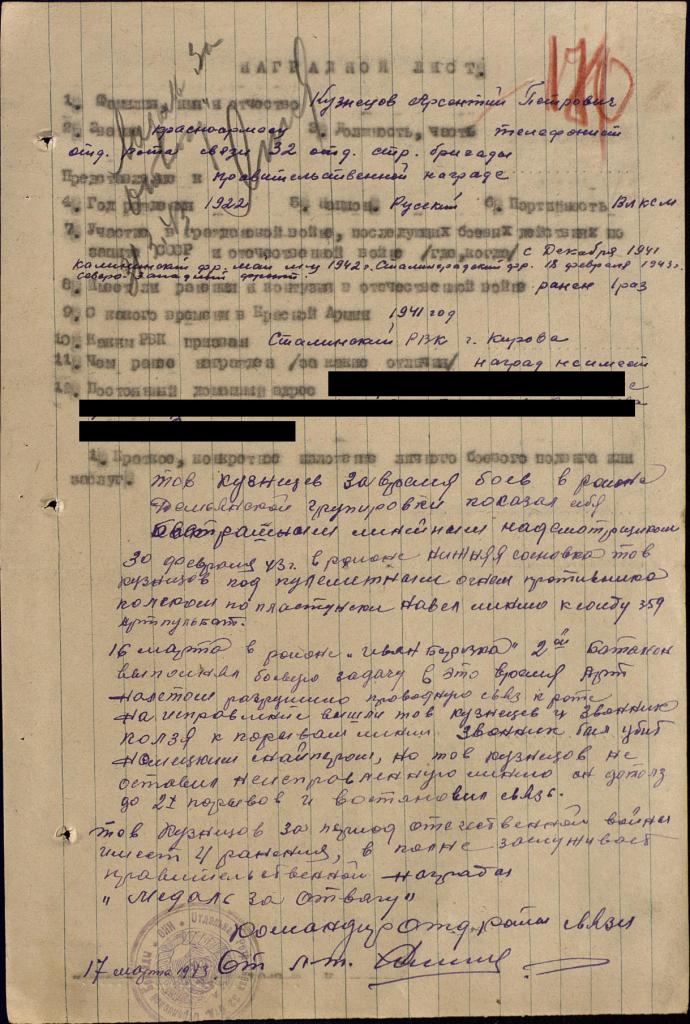 НАГРАДНОЙ ЛИСТ.
1. Фамилия, имя и отчество Кузнецов Арсентий Петрович
2. Звание красноармеец 3. Должность, часть телефонист
отд. рота связи 32 отд. стр. бригады
Представляется к правительственной награде
4. Год рождения 1922 5. Национ. Русский 6. Партийность ВЛКСМ
7. Участие в гражданской войне, последующих боевых действиях по
защите СССР и отечественной войне /где, когда/ с Декабря 1941
калининский фр. май м-ц 1942 г. Сталинградский фр. 18 февраля 1943 г.
Северо-Западный фронт.
8. Имеет ли ранения и контузии в отечественной войне ранен 1 раз
9. С какого времени в Красной Армии 1941 год
10. Каким РВК призван Сталинский РВК г. Кирова
11. Чем ранее награжден /за какие отличия/ наград не имеет
12. Постоянный домашний адрес
1. Краткое, конкретное изложение личного боевого подвига или
заслуг. тов Кузницев За время боев в районе
Демьянской групировки показал себя
бестрашным линейным надсмотрщиком
30 февраля 43 г. в районе нижняя сосновка тов
кузницов под пулеметным огнем противника
ползком по пластунски навел линию к 359
Артпулбат.
16 марта в районе 2ой Баталион
выполнял боевую задачу в это время Арт
налетом разрушило проводную связ к роте
на исправление вышли тов кузницев и Званник
ползя к порывам линии Званник был убит
немецким снайпером, но тов кузницов не
оставил неисправленную линию он дополз
до 24 порывов и востановил связь.
тов Кузницов за период отечественной войны
имеет 4 ранения, в полне заслуживает
правительственной награды
"Медаль За отвагу"
Командир отд. роты связи
17 марта 1943. Ст л-т.